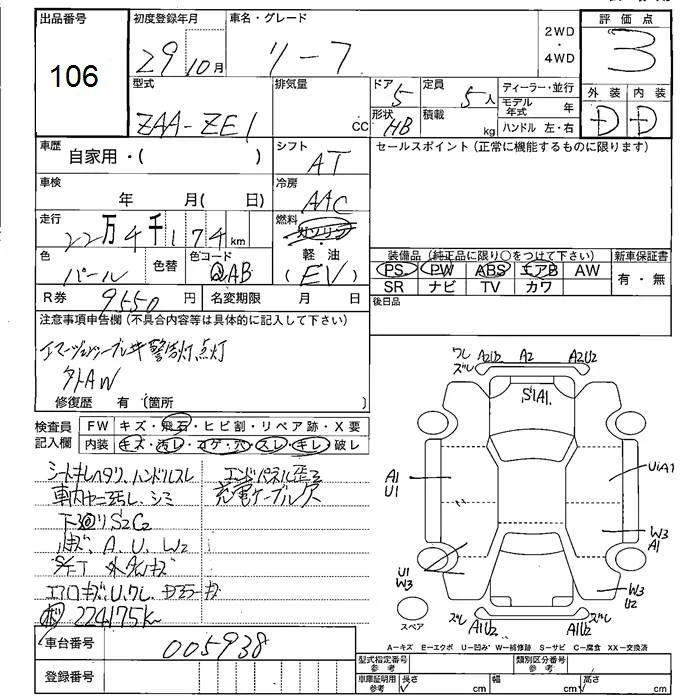 出品番号 初度登録年月 車名・グレード 2WD・4WD 評価点
106 29年10月 リーフ 3
型式 排気量 cc ドア 5 定員 5人 ディーラー・並行 外装 内装
ZAA-ZE1 形状 HB 積載 kg モデル年式 年 D D
ハンドル 左・右
車歴 自家用・( ) シフト AT セールスポイント(正常に機能するものに限ります)
車検 年 月( 日) 冷房 AAC
走行 22万4千174km 燃料 ガソリン
色 パール 色替 色コード QAB 軽油 (EV)
装備品(純正品に限り○をつけて下さい) 新車保証書
PS PW ABS エアB AW 有・無
SR ナビ TV カワ
R券 9550円 名変期限 月 日 後日品
注意事項申告欄(不具合内容等は具体的に記入して下さい)
警告灯点灯
外AW
修復歴 有(箇所 )
検査員記入欄 FW キズ・飛石・ヒビ割・リペア跡・X要
内装 キズ・汚レ・コゲ・穴・スレ・キレ・破レ
シートキレヘタリ、ハンドルスレ エンドパネル歪ミ
車内ヤニ汚レ、シミ 充電ケーブル欠
下回リS2C2
A、U、W2
224175k
ワレ ズレ A2U2 A2 A2U2
S1A1
A1 U1 U1A1
W3 A1
U1 W3 W3 U2
スペア ズレ A1U2 A1U2 ズレ
A-キズ E-エクボ U-凹み W-補修跡 S-サビ C-腐食 XX-交換済
車台番号 005938
登録番号
型式指定番号 参考 類別区分番号 参考
車庫証明用 参考 長さ cm 幅 cm 高さ cm